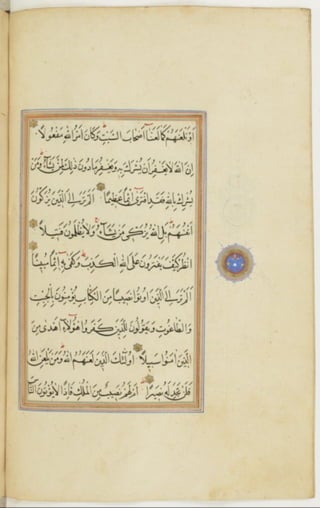 أو نلعنهم كما لعنا أصحاب السبت وكان أمر الله مفعولا
إن الله لا يغفر أن يشرك به ويغفر ما دون ذلك لمن يشاء ومن
يشرك بالله فقد افترى إثما عظيما ألم تر إلى الذين يزكون
أنفسهم بل الله يزكي من يشاء ولا يظلمون فتيلا
انظر كيف يفترون على الله الكذب وكفى به إثما مبينا
ألم تر إلى الذين أوتوا نصيبا من الكتاب يؤمنون بالجبت
والطاغوت ويقولون للذين كفروا هؤلاء أهدى من
الذين آمنوا سبيلا أولئك الذين لعنهم الله ومن يلعن الله
فلن تجد له نصيرا أم لهم نصيب من الملك فإذا لا يؤتون الناس